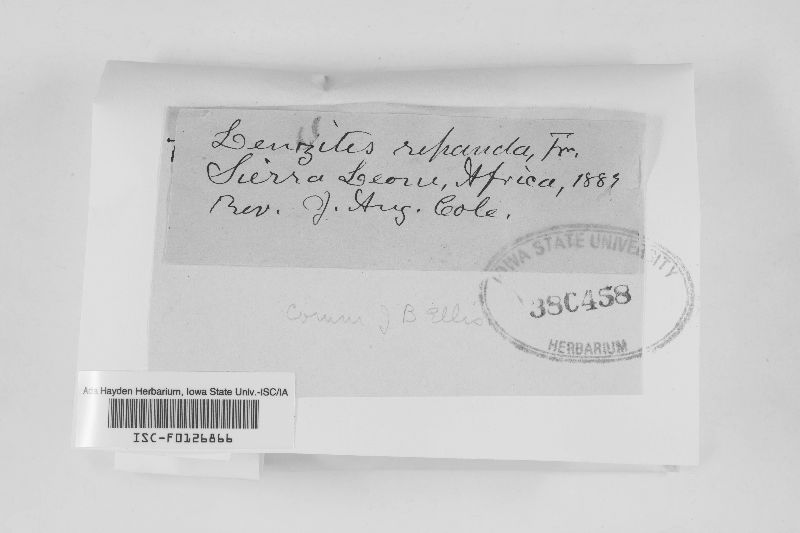 Lenzites repanda, Fr.
Sierra Leone, Africa, 1889
Rev. J. Aug. Cole.
IOWA STATE UNIVERSITY
38C458
HERBARIUM
Comm J B Ellis
Ada Hayden Herbarium, Iowa State Univ.-ISC/IA
ISC-F0126866